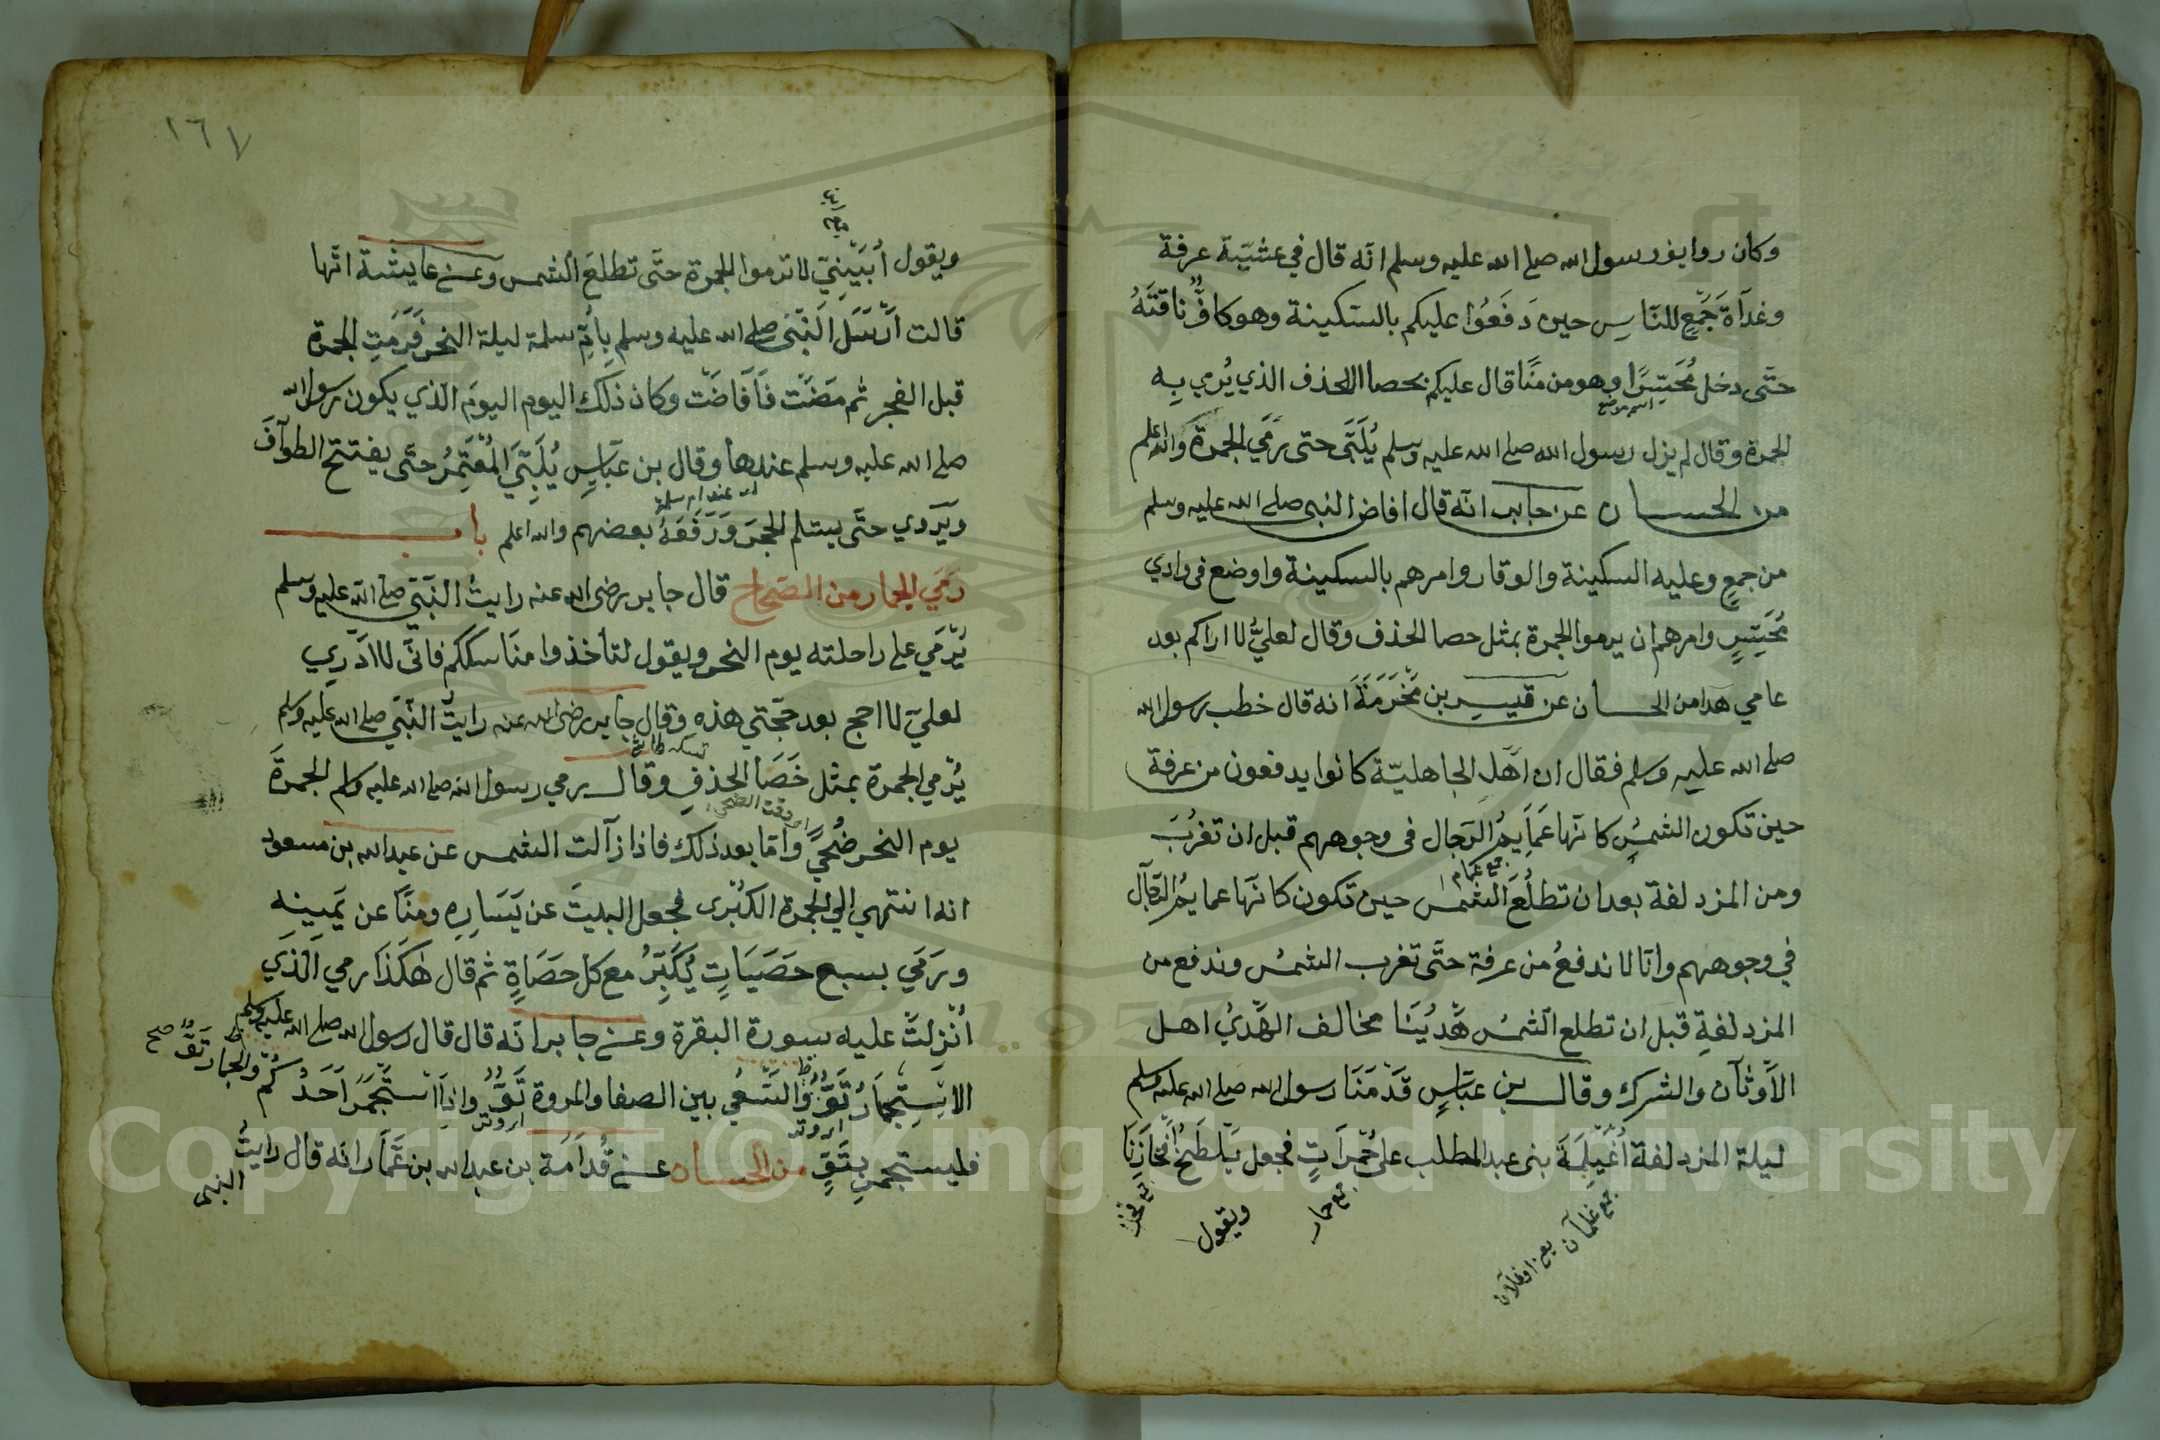 وكان رديف رسول الله صلى الله عليه وسلم انه قال في عشيّة عرفة
وغداة جمع للناس حين دفعوا عليكم بالسكينة وهو كافّ ناقته
حتى دخل محسّرا وهو من منًا قال عليكم بحصا الخذف الذي يرمي به
اسم موضع
الجمرة وقال لم يزل رسول الله صلى الله عليه وسلم يلبّى حتى رمي الجمرة والله اعلم
من الحسان عن جابر انه قال افاض النبى صلى الله عليه وسلم
من جمع وعليه السكينة والوقار وامرهم بالسكينة واوضع فى وادي
محسّر وامرهم ان يرموا الجمرة بمثل حصا الخذف وقال لعليّ لا اراكم بعد
عامي هذا من الحسان عن قيس بن مخرمة انه قال خطب رسول الله
صلى الله عليه وسلم فقال ان اهل الجاهليّة كانوا يدفعون من عرفة
حين تكون الشمس كانها عمايم الرجال فى وجوههم قبل ان تغرب
جمع عمام
ومن المزدلفة بعد ان تطلع الشمس حين تكون كانها عمايم الرجال
في وجوههم وانا لا ندفع من عرفة حتّى تغرب الشمس وندفع من
المزدلفة قبل ان تطلع الشمس هدينا مخالف الهدي اهل
الاوثان والشرك وقال بن عباس قدمنا رسول الله صلى الله عليه وسلم
ليلة المزدلفة اغيلمة بنى عبد المطلب على حمرات فجعل يلطح افخاذنا
جمع غلمان
جمع حمار
جمع فخذ
ويقول
١٦٧
ويقول أبينيّ لا ترموا الجمرة حتّى تطلع الشمس وعن عايشة انها
قالت ارسل النبى صلى الله عليه وسلم بأم سلمة ليلة النحر فرمت الجمرة
قبل الفجر ثم مضت فافاضت وكان ذلك اليوم اليوم الذي يكون رسول الله
صلى الله عليه وسلم عندها وقال بن عباس يلبّي المعتمر حتى يفتتح الطواف
اى عند ام سلمة
ويروي حتّى يستلم الحجر ورفعه بعضهم والله اعلم باب
رمي الجمار من الصحاح قال جابر رضى الله عنه رايت النبي صلى الله عليه وسلم
يرمي على راحلته يوم النحر ويقول لتأخذوا مناسككم فانى لا ادري
لعليّ لا احج بعد حجتي هذه وقال جابر رضى الله عنه رايت النبي صلى الله عليه وسلم
يرمي الجمرة بمثل حصا الخذف وقال رمي رسول الله صلى الله عليه وسلم الجمرة
اى وقت الضحى
يوم النحر ضحىً واما بعد ذلك فاذا زالت الشمس عن عبد الله بن مسعود
انه انتهي الي الجمرة الكبرى فجعل البيت عن يساره ومنًا عن يمينه
ورمي بسبع حصيات يكبّر مع كل حصاة ثم قال هكذا رمي الذي
أنزلت عليه سورة البقرة وعن جابر انه قال قال رسول الله صلى الله عليه وسلم
الاستجمار توّ والسعي بين الصفا والمروة توّ واذا استجمر احدكم
والجمار توّ صح
اى وتر
اى وتر
فليستجمر بتوّ من الحسان عن قدامة بن عبد الله بن عمّار انه قال رايت
النبى
Copyright © King Saud University
1957